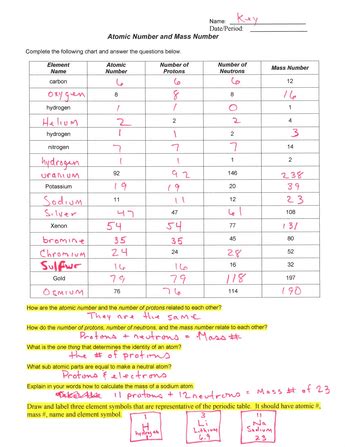 Name: Key
Date/Period:
Atomic Number and Mass Number
Complete the following chart and answer the questions below.
Element Name Atomic Number Number of Protons Number of Neutrons Mass Number
carbon 6 6 6 12
oxygen 8 8 8 16
hydrogen 1 1 0 1
Helium 2 2 2 4
hydrogen 1 1 2 3
nitrogen 7 7 7 14
hydrogen 1 1 1 2
uranium 92 92 146 238
Potassium 19 19 20 39
Sodium 11 11 12 23
Silver 47 47 61 108
Xenon 54 54 77 131
bromine 35 35 45 80
Chromium 24 24 28 52
Sulfur 16 16 16 32
Gold 79 79 118 197
Osmium 76 76 114 190
How are the atomic number and the number of protons related to each other?
They are the same
How do the number of protons, number of neutrons, and the mass number relate to each other?
Protons + neutrons = Mass #
What is the one thing that determines the identity of an atom?
the # of protons
What sub atomic parts are equal to make a neutral atom?
Protons & electrons
Explain in your words how to calculate the mass of a sodium atom.
11 protons + 12 neutrons = Mass # of 23
Draw and label three element symbols that are representative of the periodic table. It should have atomic #,
mass #, name and element symbol.
1 3 11
H Li Na
hydrogen Lithium Sodium
6.9 23